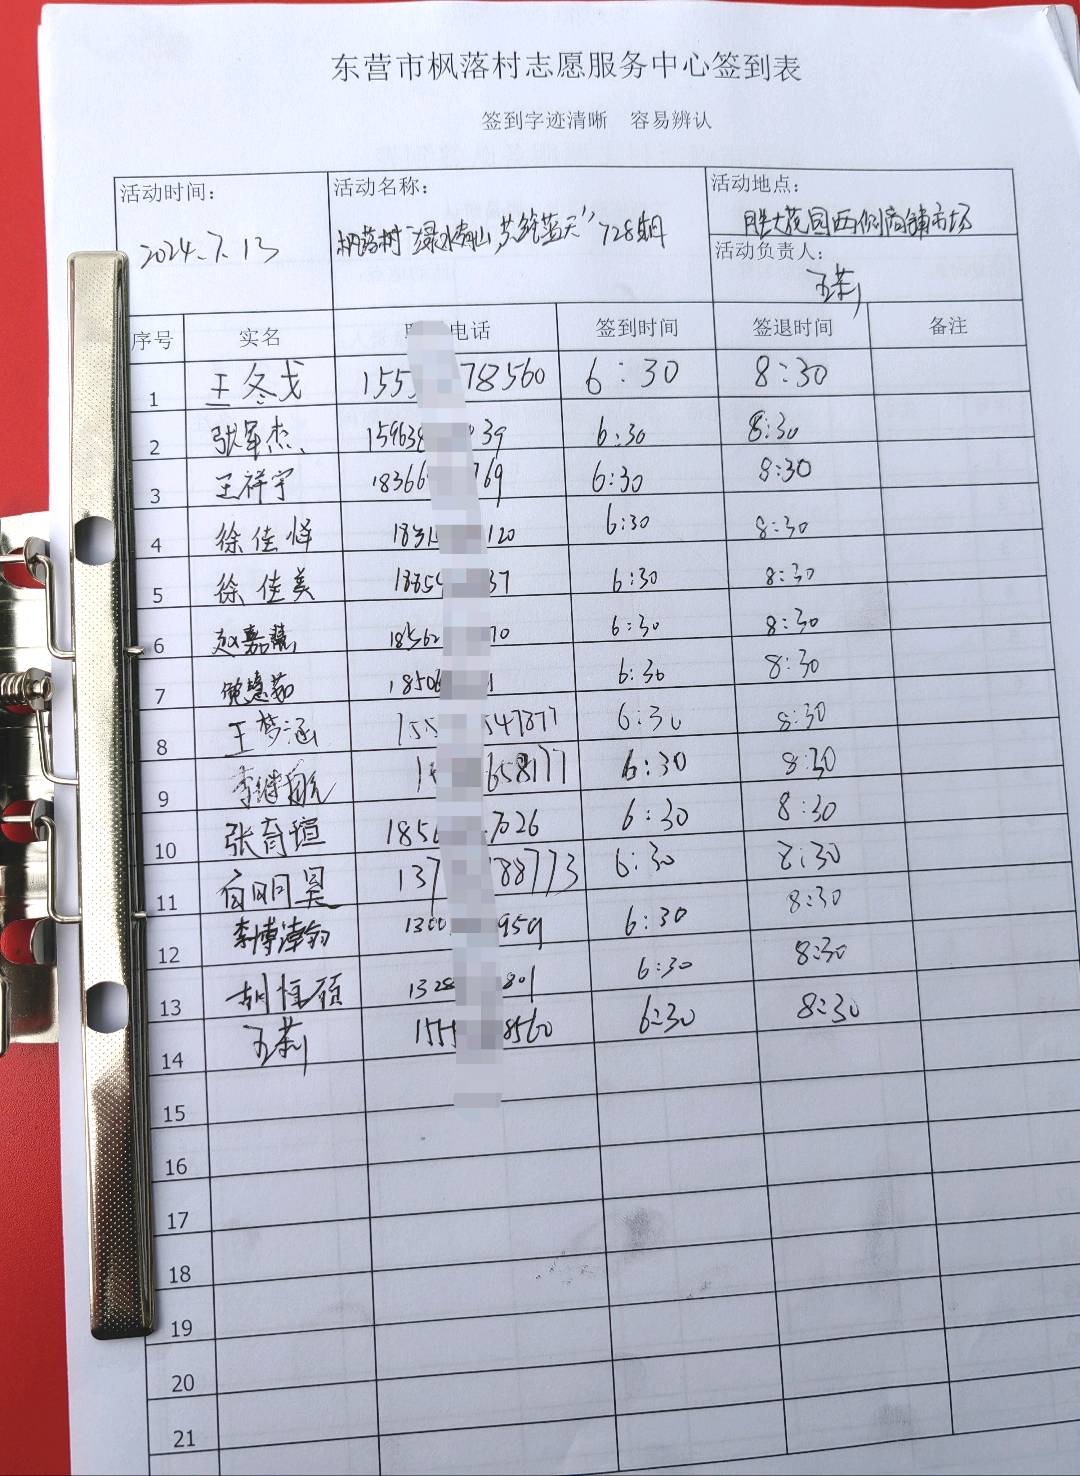 东营市枫落村志愿服务中心签到表
签到字迹清晰 容易辨认
活动时间：
2024.7.13
活动名称：
枫落村“绿水青山,共筑蓝天”728期
活动地点：
胜大花园西侧商铺市场
活动负责人：
王莉
序号 实名 电话 签到时间 签退时间 备注
1 王冬戈 155 78560 6:30 8:30
2 张军杰 15963 39 6:30 8:30
3 王祥宇 1836 769 6:30 8:30
4 徐佳 183 120 6:30 8:30
5 徐佳美 1885 37 6:30 8:30
6 赵嘉 1856 70 6:30 8:30
7 慧茹 1850 1 6:30 8:30
8 王梦涵 155 547877 6:30 8:30
9 李继航 1 658177 6:30 8:30
10 张育瑄 185 7026 6:30 8:30
11 明昊 137 188773 6:30 8:30
12 李博 130 959 6:30 8:30
13 胡恒硕 1328 801 6:30 8:30
14 王莉 155 8560 6:30 8:30
15
16
17
18
19
20
21